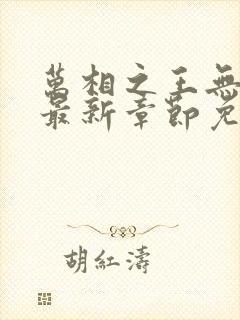 萬相之王無
最新章節免
胡紅濤